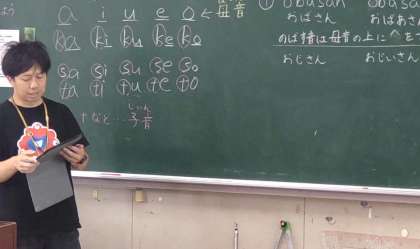 a i u e o ← 母音
ka ki ku ke ko
sa si su se so
ta ti tu te to
など… 子音
しいん
① obasan
おばさん おばあさ
のばす音は母音の上に^をつ
おじさん おじいさん